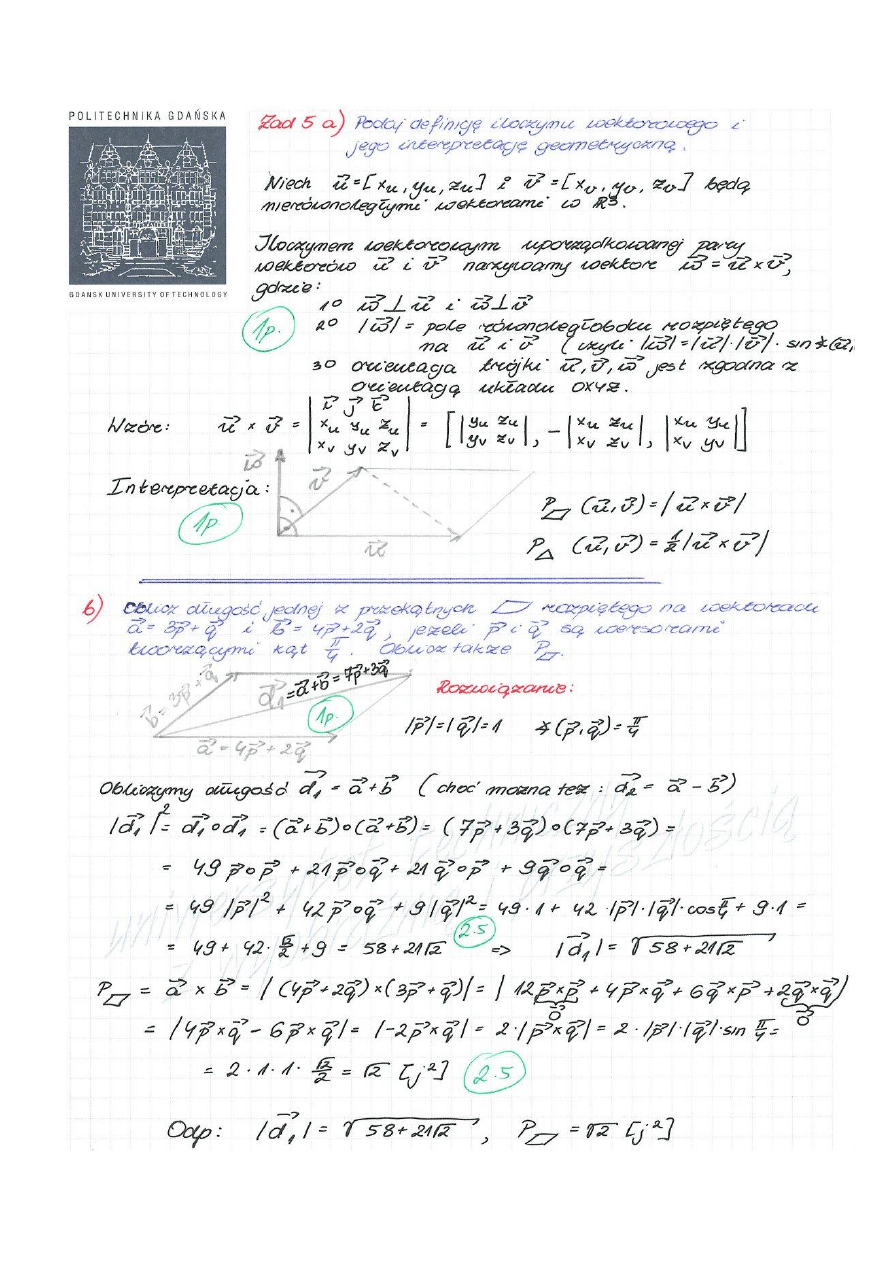 POLITECHNIKA GDAŃSKA
GDAŃSK UNIVERSITY OF TECHNOLOGY
Zad 5 a) Podaj definicję iloczynu wektorowego i
jego interpretację geometryczną.
Niech u⃗=[xᵤ, yᵤ, zᵤ] i v⃗=[xᵥ, yᵥ, zᵥ] będą
nierównoległymi wektorami w R³.
Iloczynem wektorowym uporządkowanej pary
wektorów u⃗ i v⃗ nazywamy wektor w⃗ = u⃗ × v⃗,
gdzie:
1° w⃗ ⊥ u⃗ i w⃗ ⊥ v⃗
1p.
2° |w⃗| = pole równoległoboku rozpiętego
na u⃗ i v⃗ (czyli |w⃗|=|u⃗|·|v⃗|· sin∢(u⃗,
3° orientacja trójki u⃗, v⃗, w⃗ jest zgodna z
orientacją układu OXYZ.
Wzór: u⃗ × v⃗ = |i⃗ j⃗ k⃗; xᵤ yᵤ zᵤ; xᵥ yᵥ zᵥ| = [|yᵤ zᵤ; yᵥ zᵥ|, −|xᵤ zᵤ; xᵥ zᵥ|, |xᵤ yᵤ; xᵥ yᵥ|]
Interpretacja:
1p.
w⃗
v⃗
u⃗
P▱ (u⃗,v⃗) = |u⃗ × v⃗|
P△ (u⃗,v⃗) = ½|u⃗ × v⃗|
b) Oblicz długość jednej z przekątnych ▱ rozpiętego na wektorach
a⃗ = 3p⃗+q⃗ i b⃗ = 4p⃗+2q⃗, jeżeli p⃗ i q⃗ są wersorami
tworzącymi kąt π/4. Oblicz także P▱.
b⃗ = 3p⃗ + q⃗
d⃗₁ = a⃗+b⃗ = 7p⃗+3q⃗
1p.
a⃗ = 4p⃗ + 2q⃗
Rozwiązanie:
|p⃗|=|q⃗|=1 ∢(p⃗,q⃗)=π/4
Obliczymy długość d⃗₁ = a⃗+b⃗ (choć można też: d⃗₂ = a⃗ − b⃗)
|d⃗₁|² = d⃗₁∘d⃗₁ = (a⃗+b⃗)∘(a⃗+b⃗) = (7p⃗+3q⃗)∘(7p⃗+3q⃗) =
= 49 p⃗∘p⃗ + 21p⃗∘q⃗ + 21q⃗∘p⃗ + 9q⃗∘q⃗ =
= 49 |p⃗|² + 42p⃗∘q⃗ + 9|q⃗|² = 49·1 + 42·|p⃗|·|q⃗|·cos π/4 + 9·1 =
= 49 + 42·√2/2 + 9 = 58+21√2 2.5 => |d⃗₁| = √(58+21√2)
P▱ = a⃗ × b⃗ = |(4p⃗+2q⃗)×(3p⃗+q⃗)| = |12p⃗×p⃗ + 4p⃗×q⃗ + 6q⃗×p⃗ + 2q⃗×q⃗|
0⃗ 0⃗
= |4p⃗×q⃗ − 6p⃗×q⃗| = |−2p⃗×q⃗| = 2·|p⃗×q⃗| = 2·|p⃗|·|q⃗|·sin π/4 =
= 2·1·1·√2/2 = √2 [j²] 2.5
Odp: |d⃗₁| = √(58+21√2), P▱ = √2 [j²]